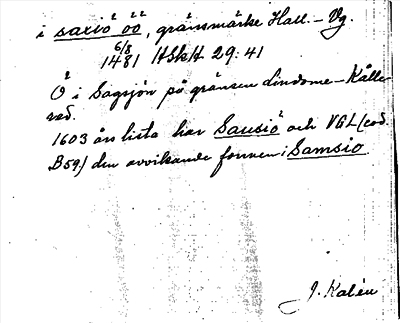 i saxiö öö, gränsmärke Hall.-Vg.
6/8
1481 HSkH 29:41
Ö i Sagsjön på gränsen Lindome-Kålle-
red.
1603 års lista har Sausiö och VGL (cod.
B59) den avvikande formen i Samsio
J. Kalén